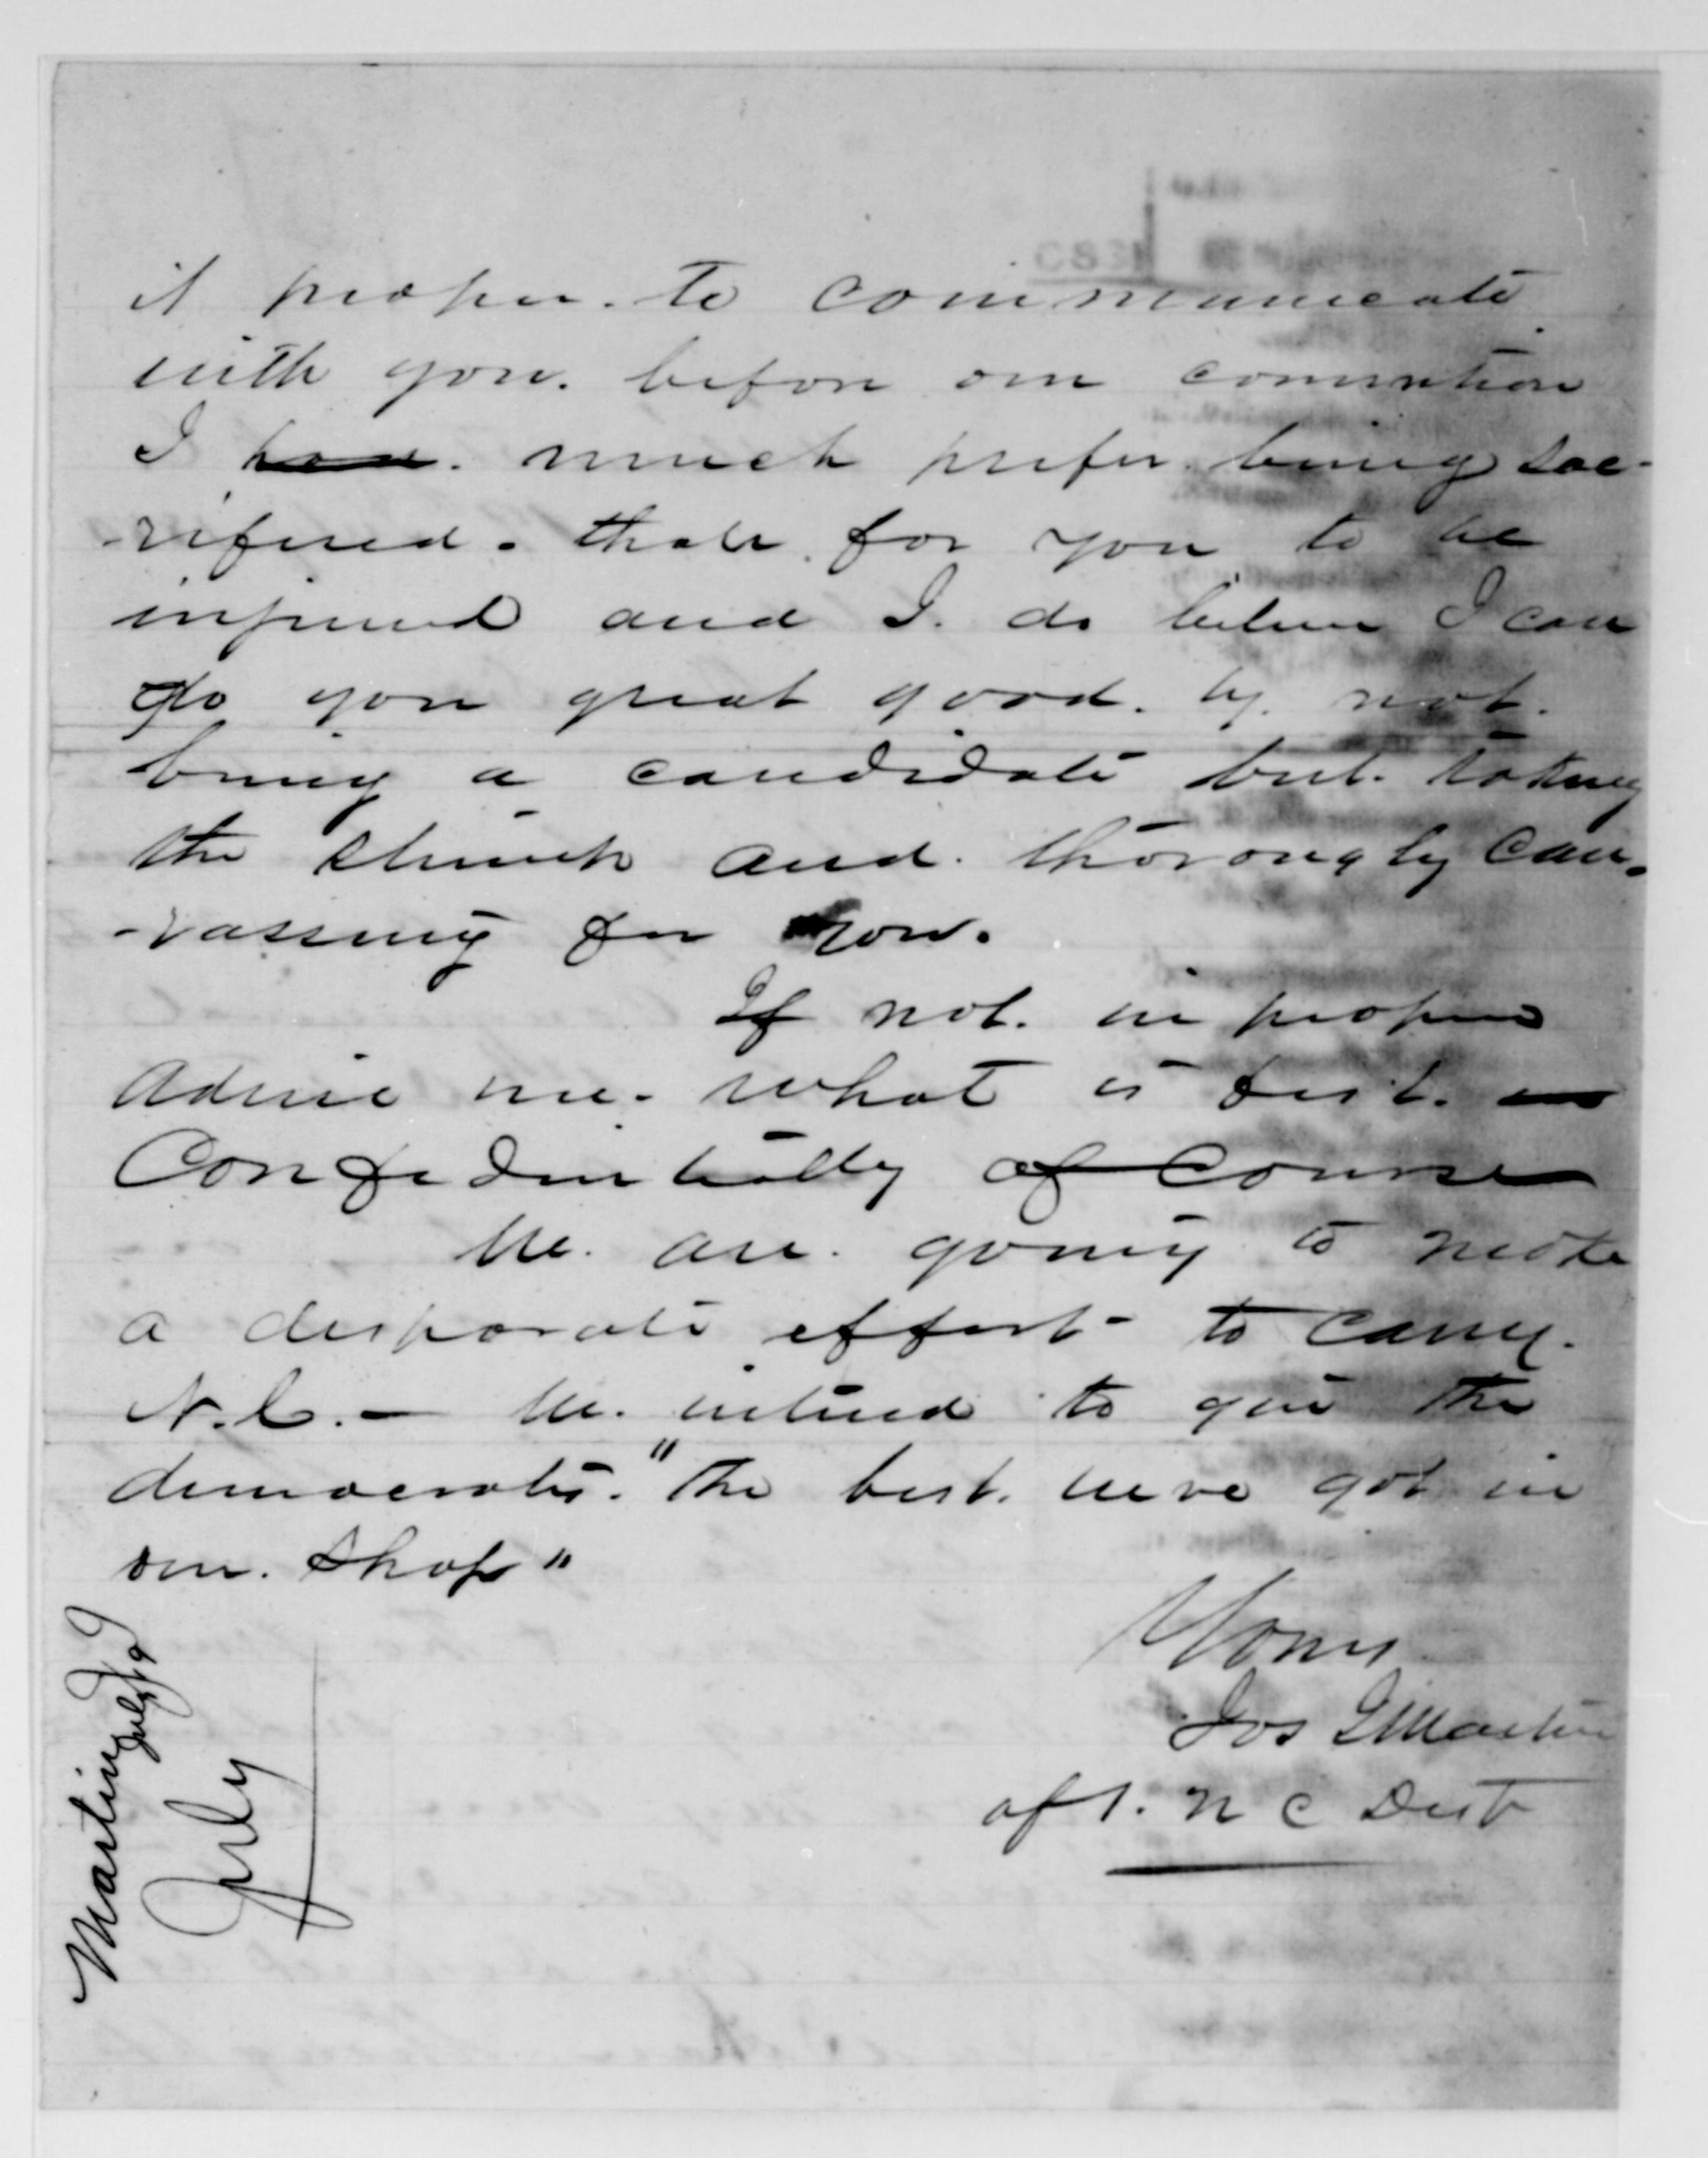 it proper. to communicate
with you. before our convention
I much prefer being sac-
-rificed. than for you to be
injured and I. do believe I can
do you great good. by. not.
being a candidate but. taking
the stump and. thorougly can-
-vassing for you.
If not. improper
advise me. what is best.
Confidentially of course
We. are. going to make
a desparate effort to carry.
N.C. — We. intend to give the
democrats. "The best. we've got in
our. shop"
Yours
Jos J Martin
of 1. N C Dist
Martin J
July 19
July